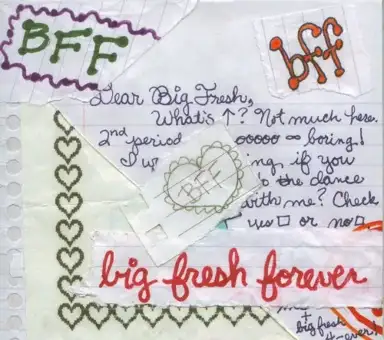 BFF
bff
Dear Big Fresh,
What's ↑? Not much here.
2nd period ooooo ∞ boring!
I w ing, if you
BFF
o the dance
with me? Check
yes □ or no □
big fresh forever
me
+
big fresh
4-ever!